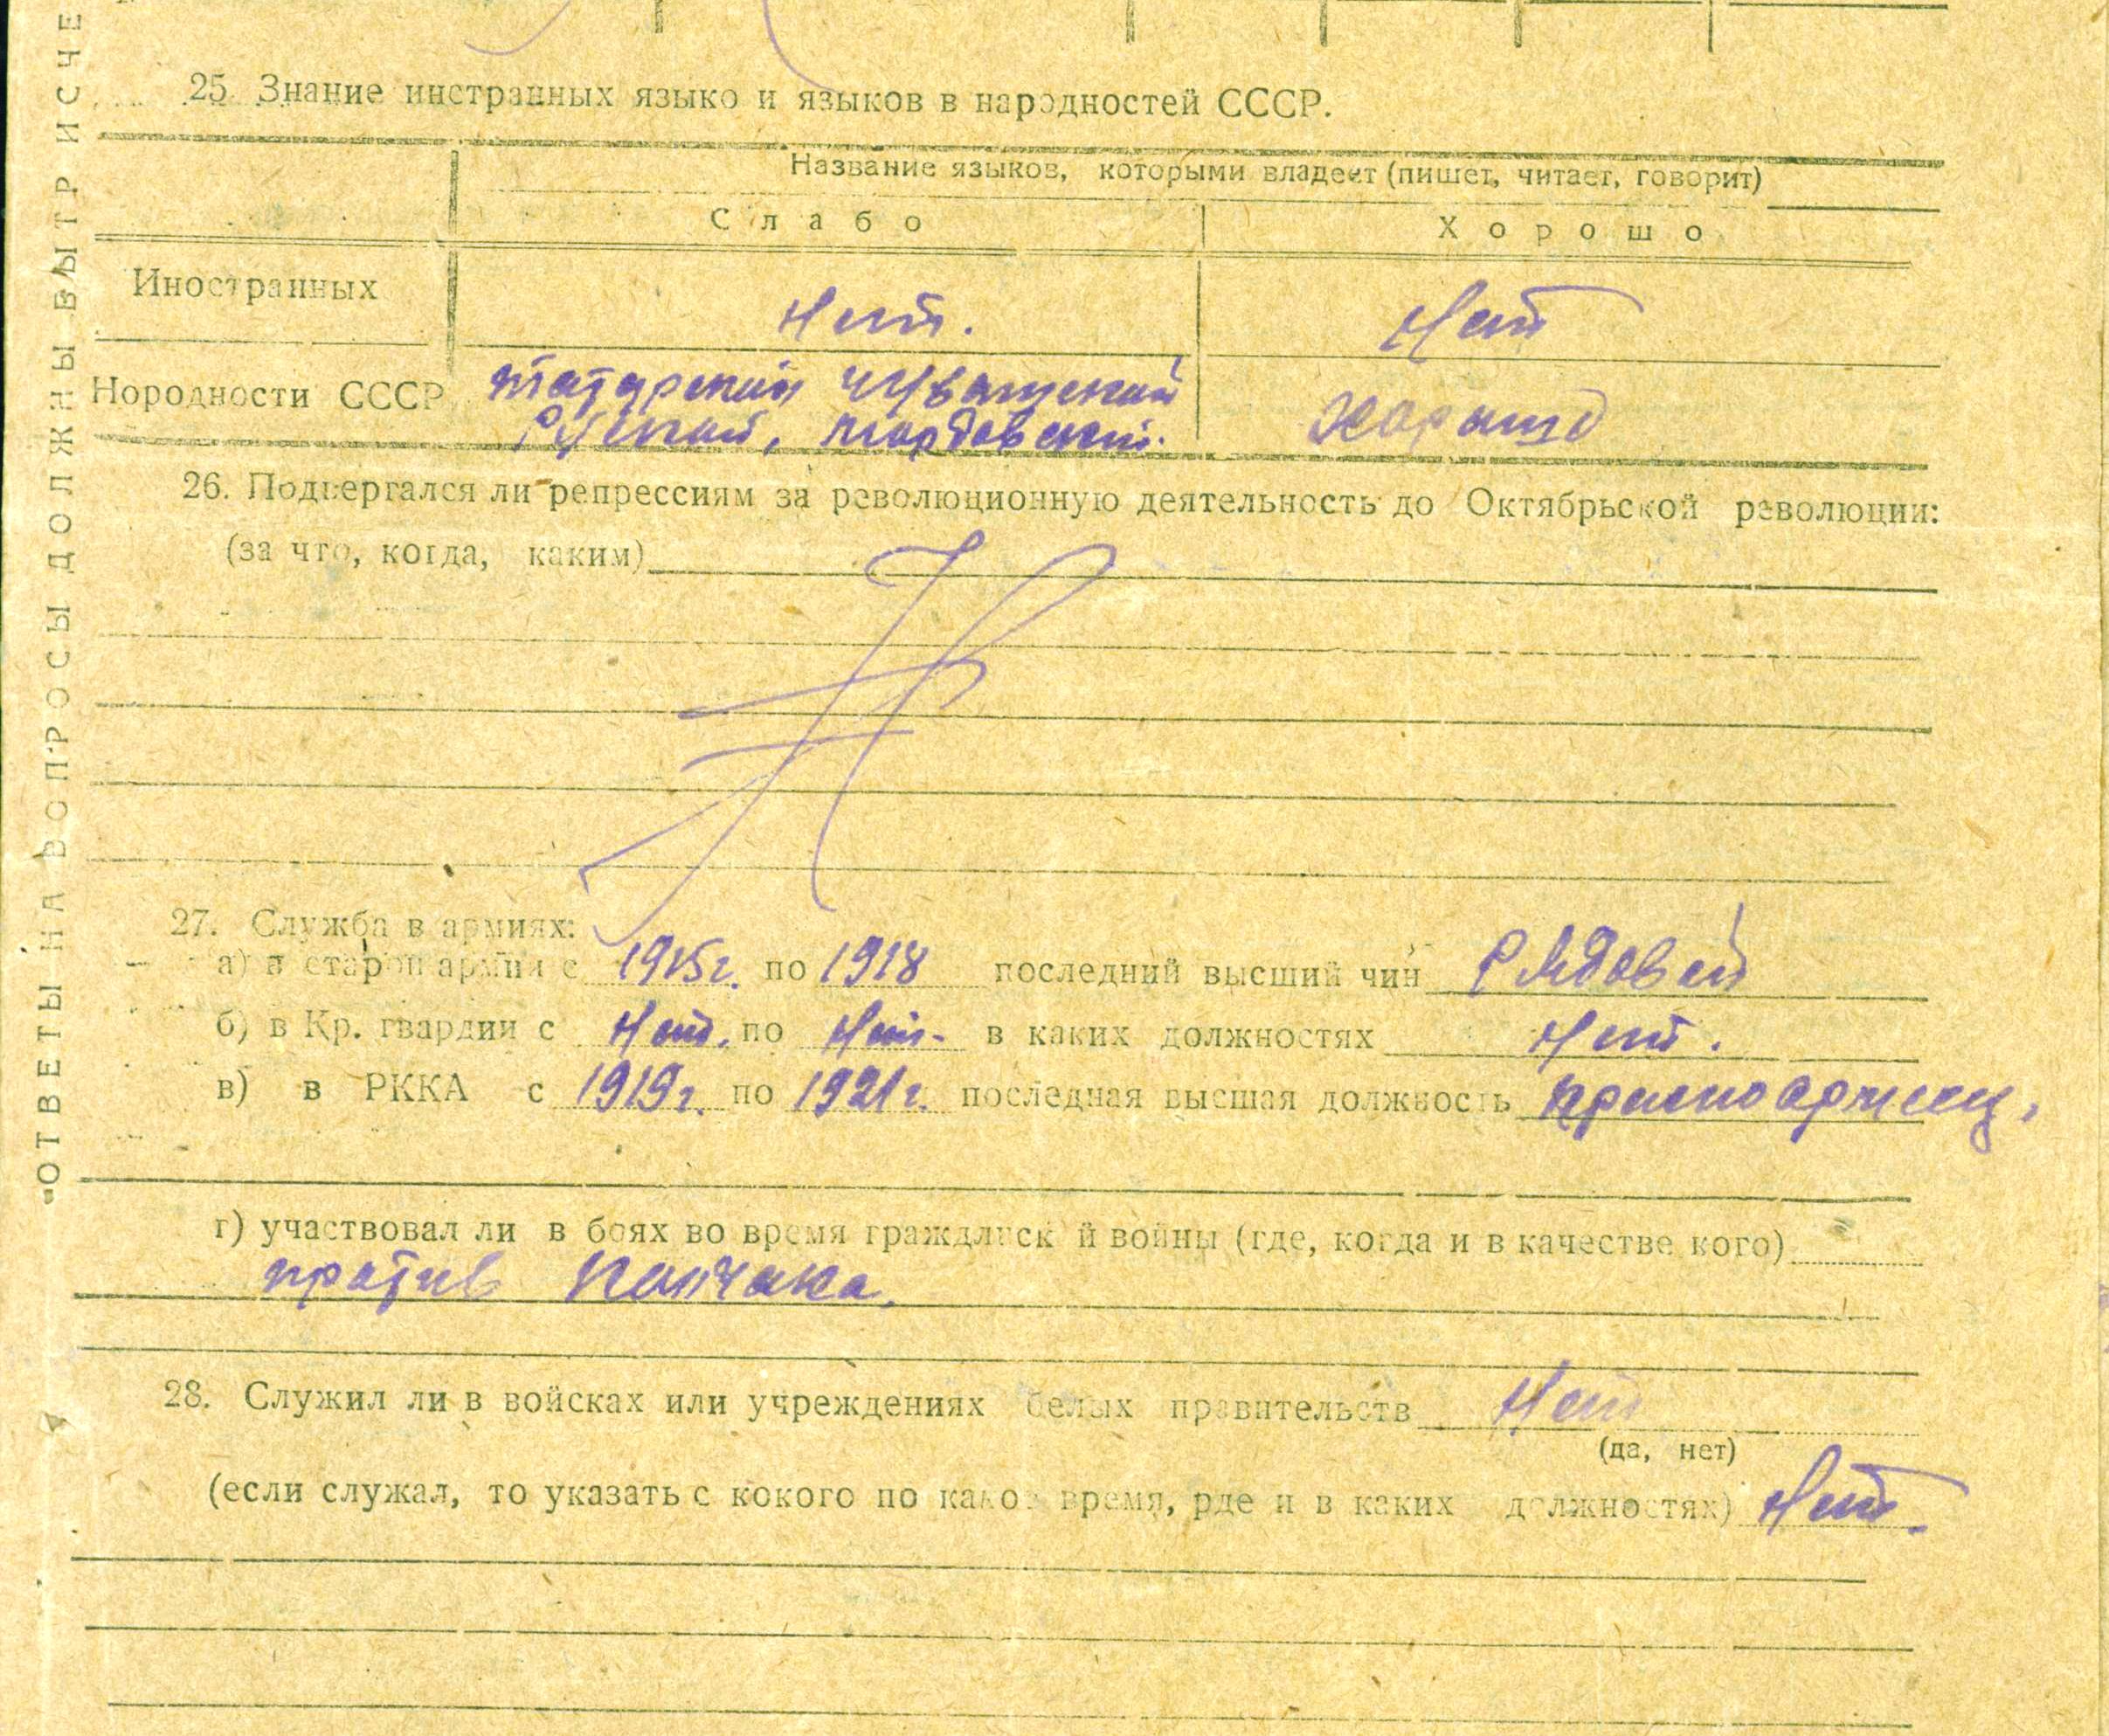 ОТВЕТЫ НА ВОПРОСЫ ДОЛЖНЫ БЫТЬ ИСЧЕ
25. Знание инстранных языко и языков в народностей СССР.
Название языков, которыми владеет (пишет, читает, говорит)
Слабо Хорошо
Иностранных Нет. Нет
Нородности СССР татарский чувашский Харашо
Руский, мордовский.
26. Подвергался ли репрессиям за революционную деятельность до Октябрьской революции:
(за что, когда, каким)
27. Служба в армиях:
а) в старой армии с 1915г. по 1918 последний высший чин Рядовой
б) в Кр. гвардии с Нет. по Нет- в каких должностях Нет.
в) в РККА с 1919г. по 1921г. последная высшая должность красноармеец.
г) участвовал ли в боях во время гражданск й войны (где, когда и в качестве кого)
против Колчака.
28. Служил ли в войсках или учреждениях белых правительств Нет
(да, нет)
(если служал, то указать с кокого по какое время, рде и в каких должностях) Нет.